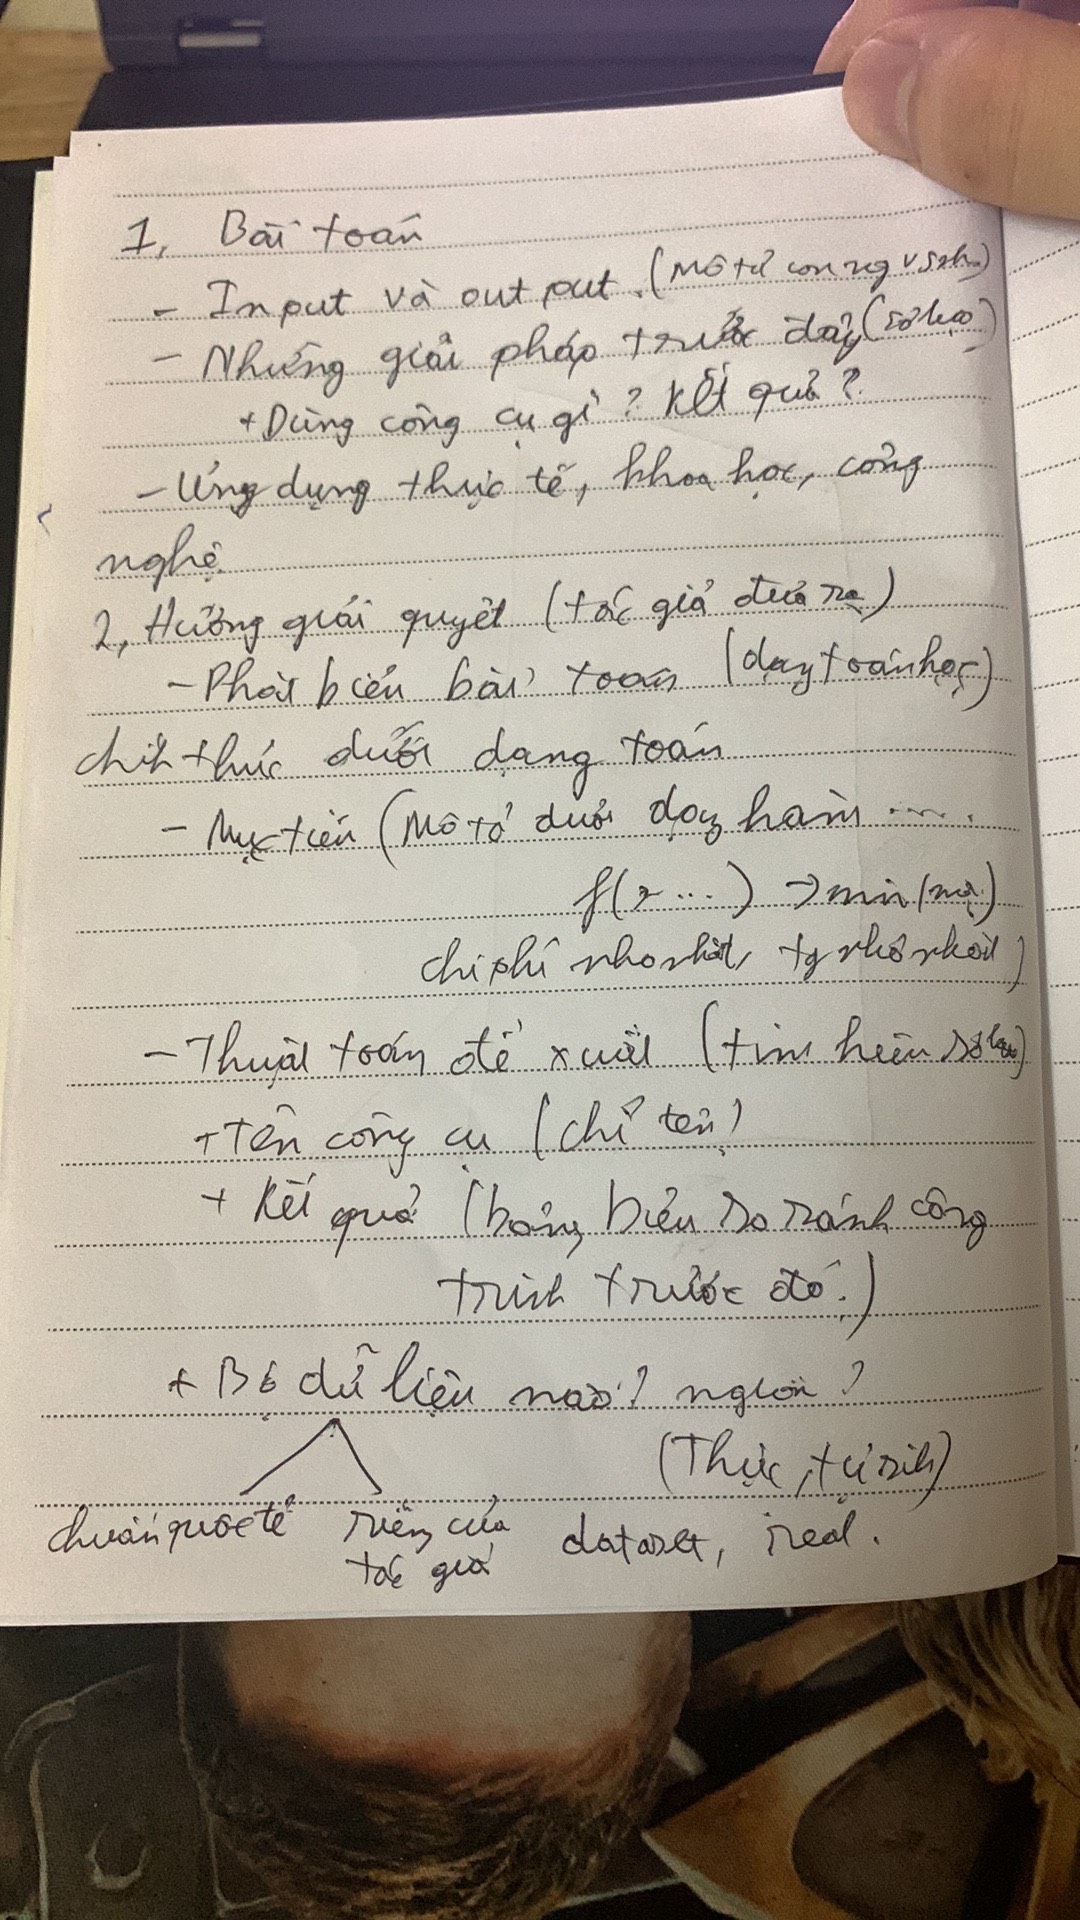 1, Bài toán
- Input và output. (Mô tả con ng
- Những giải pháp trước đây (sơ lược)
+ Dùng công cụ gì? Kết quả?
- Ứng dụng thực tế, khoa học, công
nghệ.
2, Hướng giải quyết (tác giả đưa ra)
- Phát biểu bài toán (dạng toán học)
chính thức dưới dạng toán
- Mục tiêu (Mô tả dưới dạng hàm ....
f(x ...) → min (max)
chi phí nhỏ nhất, tg nhỏ nhất)
- Thuật toán đề xuất (tìm hiểu sơ lược)
+ Tên công cụ (chỉ tên)
+ Kết quả (bảng, biểu so sánh công
trình trước đó.)
+ Bộ dữ liệu nào? nguồn?
(Thực, tự sinh)
chuẩn quốc tế riêng của dataset, real.
tác giả